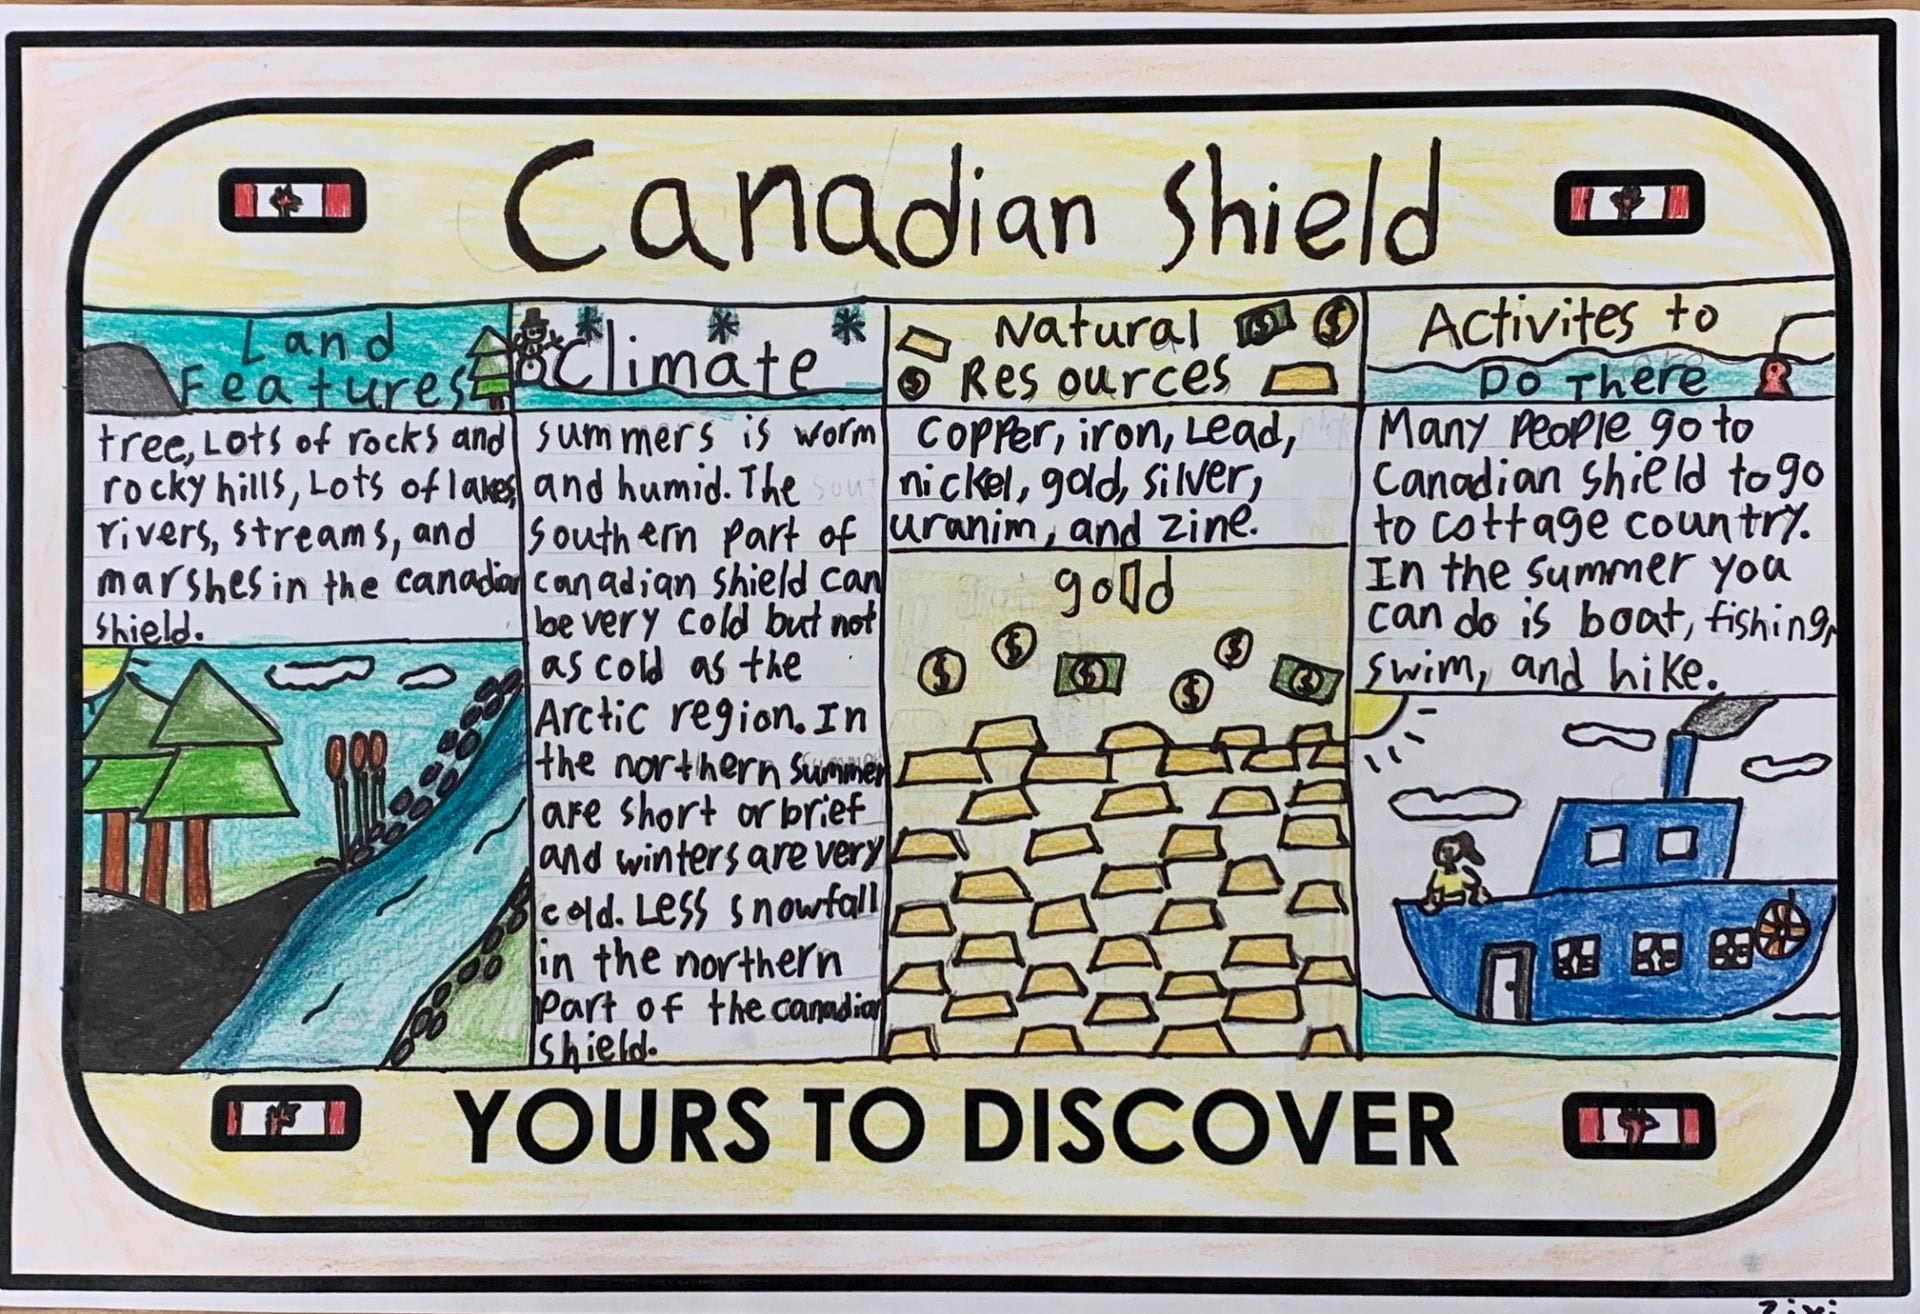 Canadian Shield
Land
Features
tree, Lots of rocks and
rocky hills, Lots of lakes,
rivers, streams, and
marshes in the canadian
shield.
Climate
summers is worm
and humid. The
southern part of
canadian shield can
be very cold but not
as cold as the
Arctic region. In
the northern summer
are short or brief
and winters are very
cold. Less snowfall
in the northern
part of the canadian
shield.
Natural
Resources
Copper, iron, Lead,
nickel, gold, silver,
uranim, and zine.
gold
Activites to
Do There
Many people go to
Canadian shield to go
to cottage country.
In the summer you
can do is boat, fishing,
swim, and hike.
YOURS TO DISCOVER